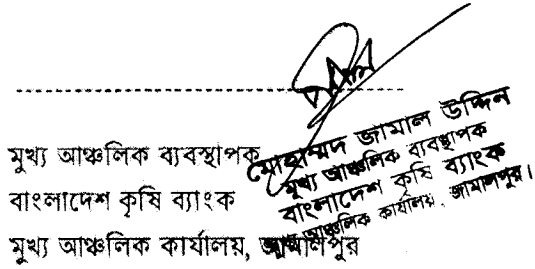 মুখ্য আঞ্চলিক ব্যবস্থাপক
বাংলাদেশ কৃষি ব্যাংক
মুখ্য আঞ্চলিক কার্যালয়, জামালপুর
মোহাম্মদ জামাল উদ্দিন
মুখ্য আঞ্চলিক ব্যবস্থাপক
বাংলাদেশ কৃষি ব্যাংক
মুখ্য আঞ্চলিক কার্যালয়, জামালপুর।